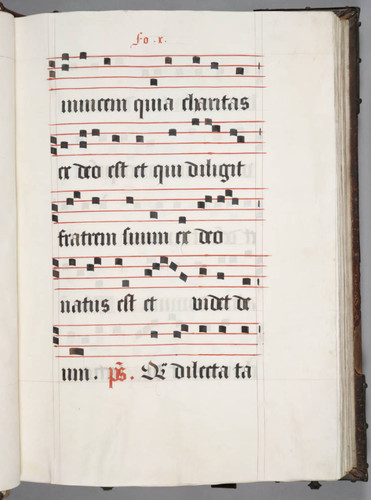 fo . x.
inuicem quia charitas
ex deo est et qui diligit
fratrem suum ex deo
natus est et videt de
um . ps. Q dilecta ta